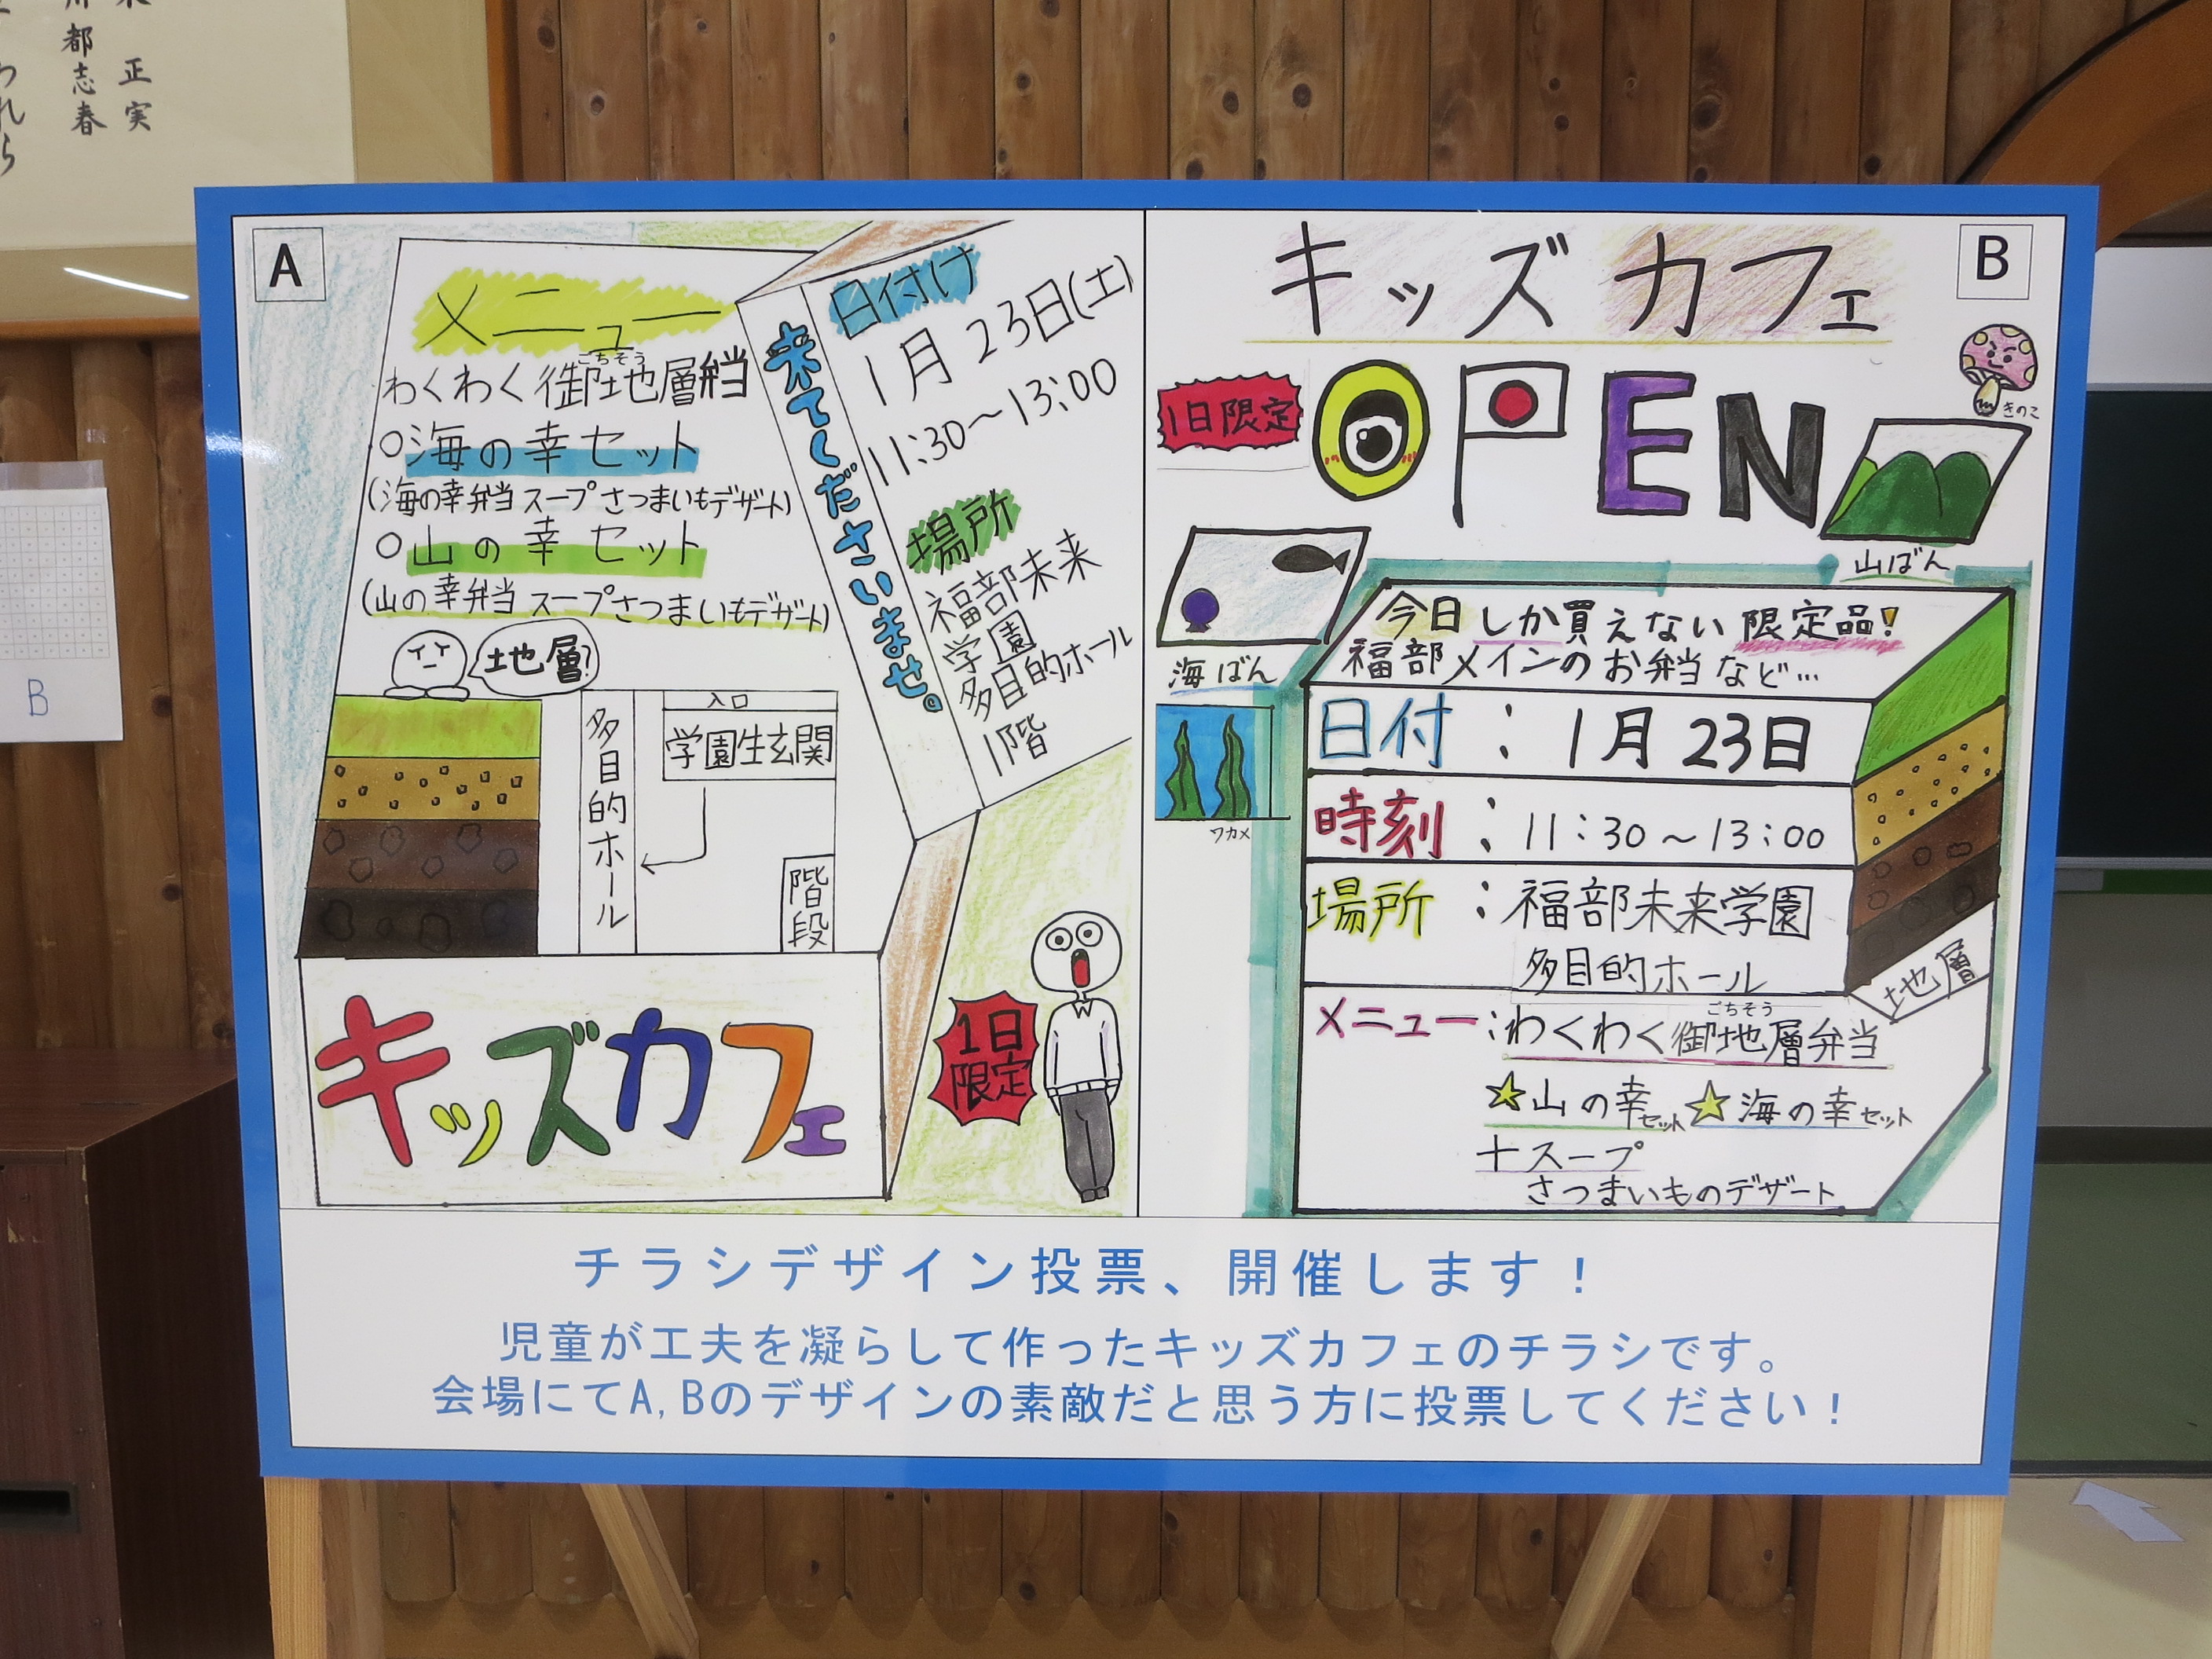 正実
都志春
われら
B
A
メニュー
ごちそう
わくわく御地層弁当
○海の幸セット
(海の幸弁当 スープ さつまいもデザート)
○山の幸セット
(山の幸弁当 スープ さつまいもデザート)
地層?
入口
学園生玄関
多目的ホール
階段
キッズカフェ
来てくださいませ。
日付け
1月23日(土)
11:30〜13:00
場所
福部未来
学園
多目的ホール
1階
1日
限定
B
キッズカフェ
1日限定
OPEN
きのこ
山ばん
海ばん
ワカメ
今日しか買えない限定品!
福部メインのお弁当など…
日付:1月23日
時刻:11:30〜13:00
場所:福部未来学園
多目的ホール
地層
ごちそう
メニュー:わくわく御地層弁当
☆山の幸セット ☆海の幸セット
+スープ
さつまいものデザート
チラシデザイン投票、開催します!
児童が工夫を凝らして作ったキッズカフェのチラシです。
会場にてA,Bのデザインの素敵だと思う方に投票してください!